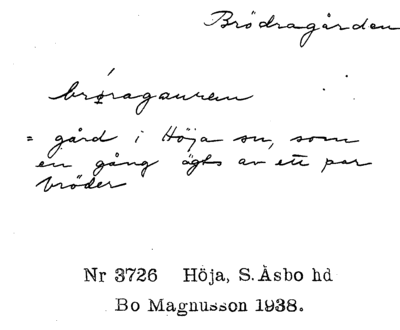 Brödragården
brǿ̜raganren
= gård i Höja sn, som
en gång ägts av ett par
bröder
Nr 3726 Höja, S. Åsbo hd
Bo Magnusson 1938.